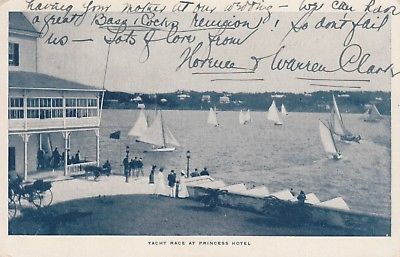 having your mother at our wedding – we can have
a great Basq (Cocks Reunion)! So don't fail
us – Lots of love from
Florence & Warren Clark
YACHT RACE AT PRINCESS HOTEL